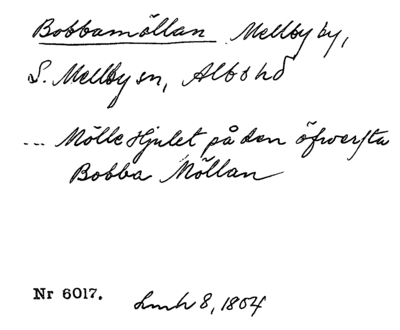 Bobbamöllan Mellby by,
S. Mellby sn, Albo hd
... Mölle Hjulet på den öfwersta
Bobba Möllan
Nr 6017. Lmh 8, 1804